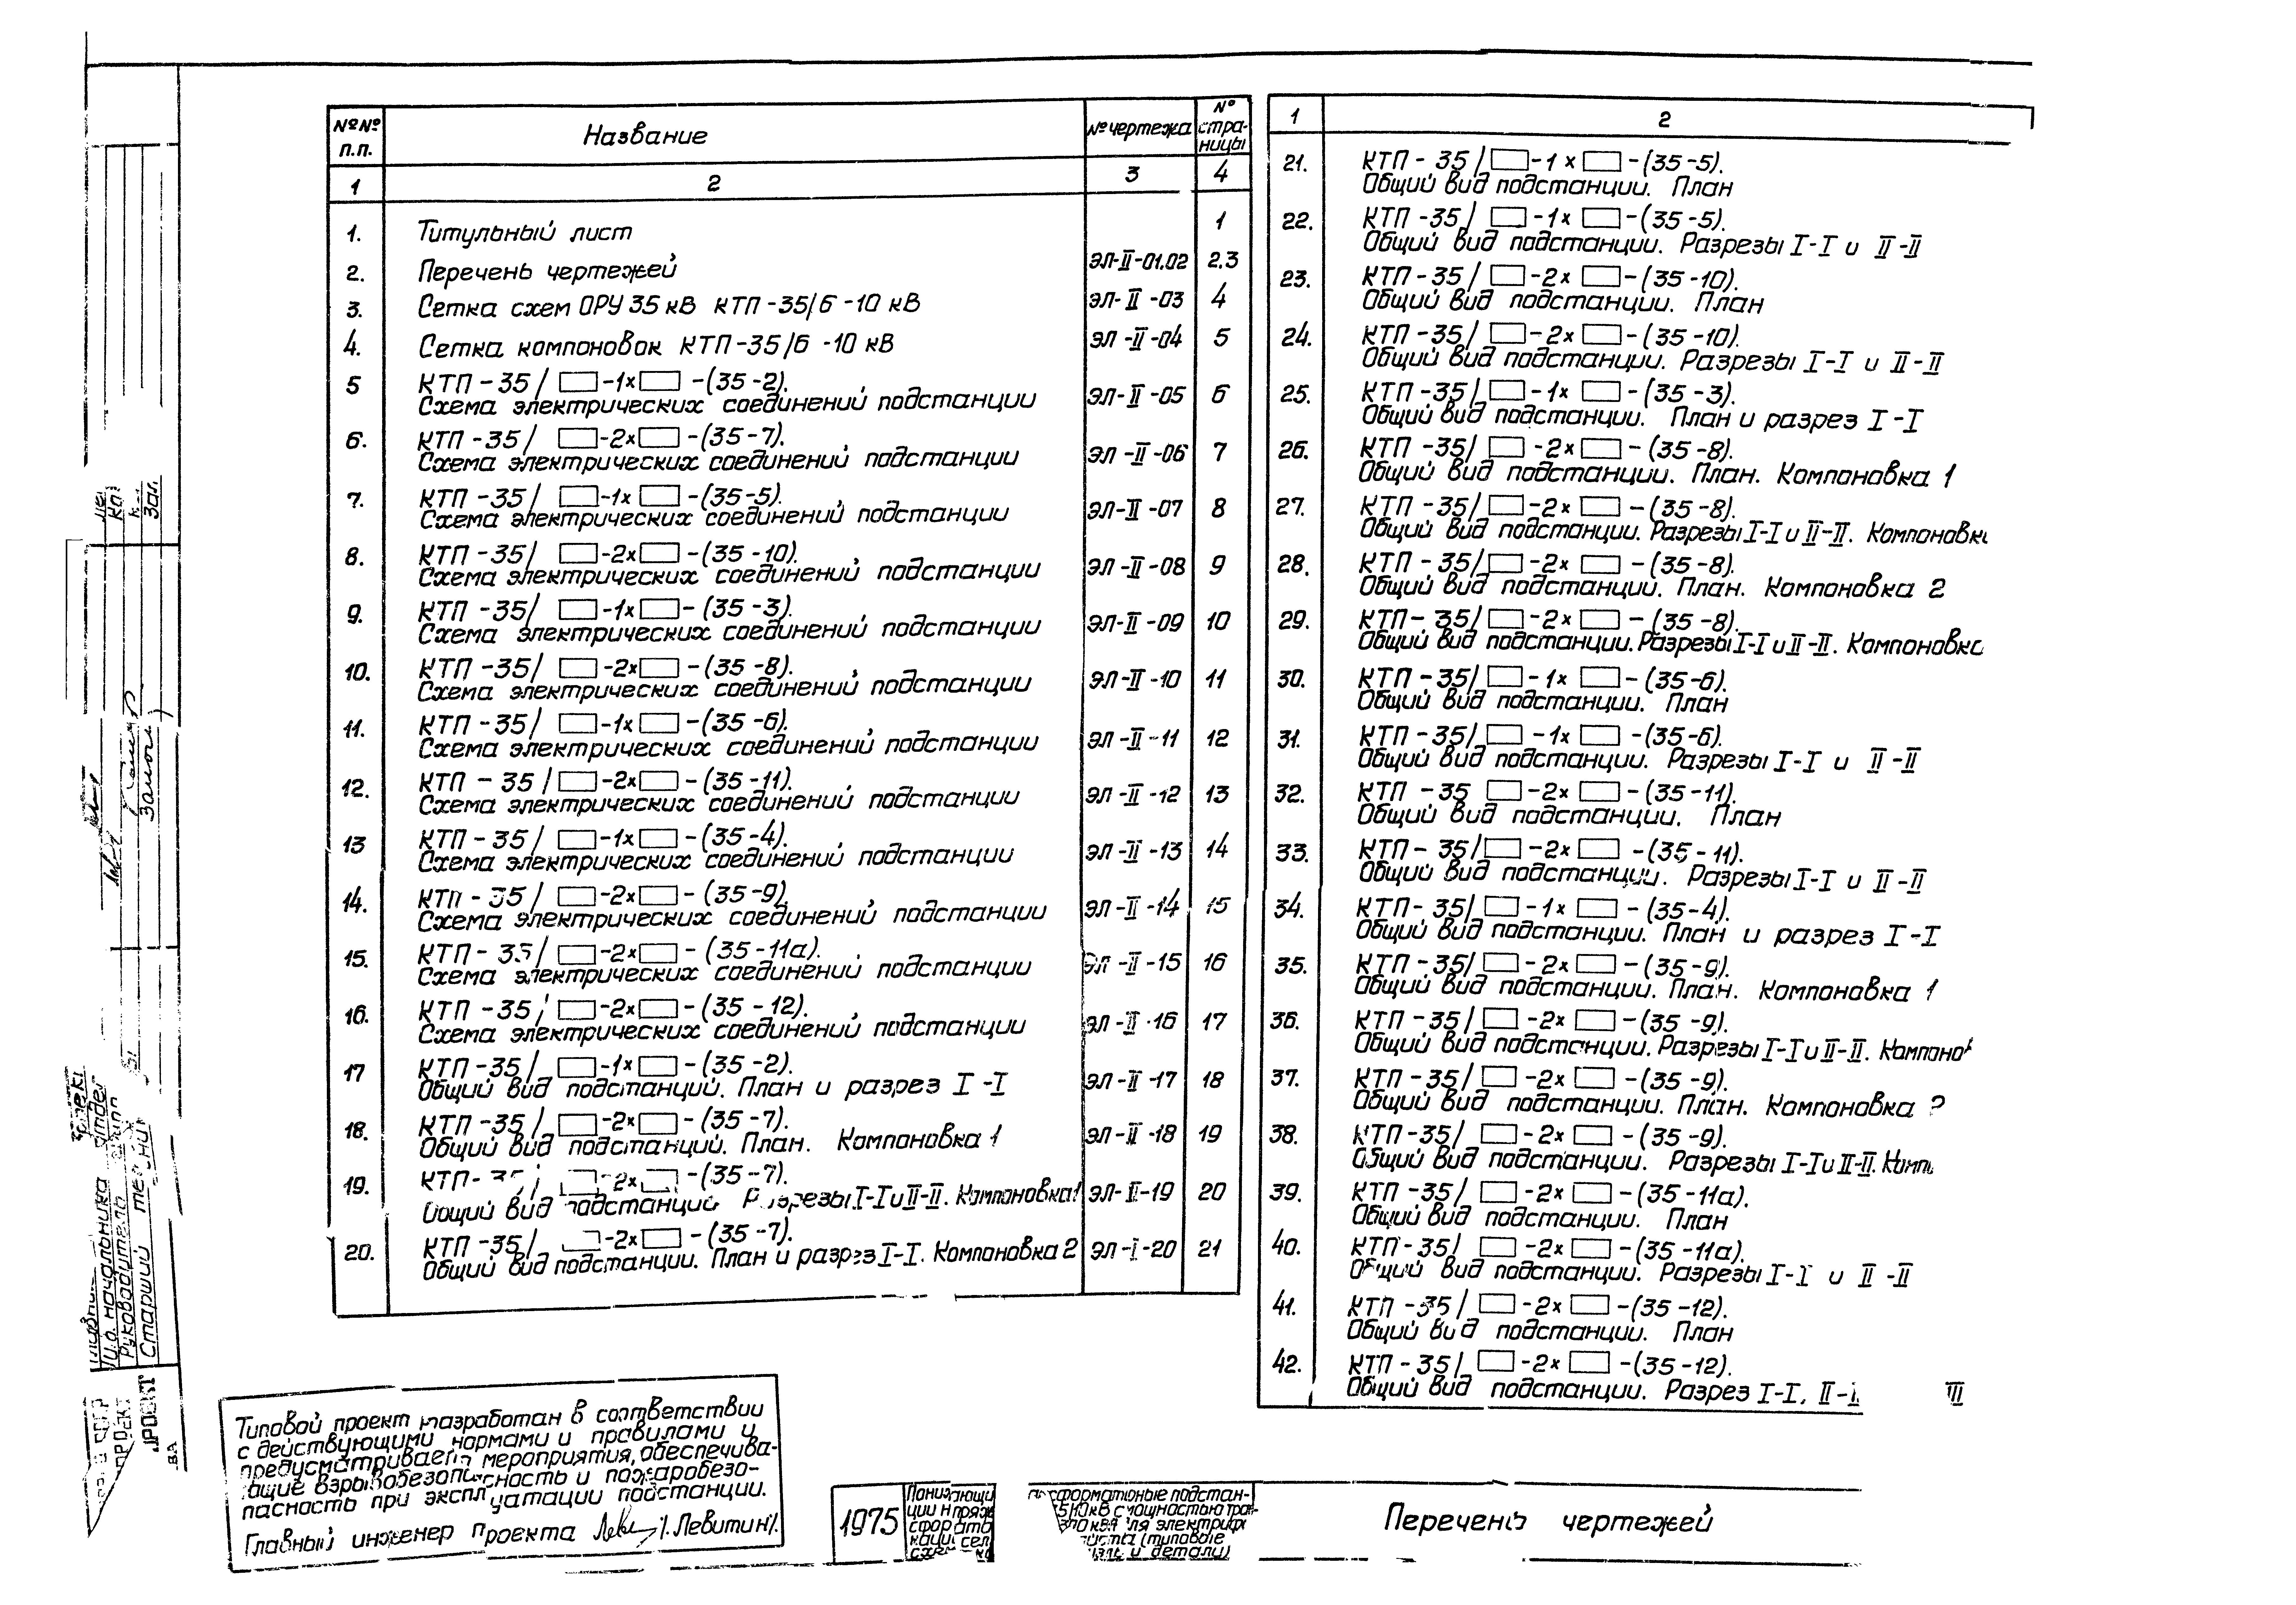 №№ п.п. Название № чертежа № стра-ницы
1 2 3 4
1. Титульный лист 1
2. Перечень чертежей ЭЛ-II-01.02 2.3
3. Сетка схем ОРУ 35 кВ КТП-35/6-10 кВ ЭЛ-II-03 4
4. Сетка компоновок КТП-35/6-10 кВ ЭЛ-II-04 5
5 КТП-35/ □-1×□-(35-2).
Схема электрических соединений подстанции ЭЛ-II-05 6
6. КТП-35/ □-2×□-(35-7).
Схема электрических соединений подстанции ЭЛ-II-06 7
7. КТП-35/ □-1×□-(35-5).
Схема электрических соединений подстанции ЭЛ-II-07 8
8. КТП-35/ □-2×□-(35-10).
Схема электрических соединений подстанции ЭЛ-II-08 9
9. КТП-35/ □-1×□-(35-3).
Схема электрических соединений подстанции ЭЛ-II-09 10
10. КТП-35/ □-2×□-(35-8).
Схема электрических соединений подстанции ЭЛ-II-10 11
11. КТП-35/ □-1×□-(35-6).
Схема электрических соединений подстанции ЭЛ-II-11 12
12. КТП-35/ □-2×□-(35-11).
Схема электрических соединений подстанции ЭЛ-II-12 13
13 КТП-35/ □-1×□-(35-4).
Схема электрических соединений подстанции ЭЛ-II-13 14
14. КТП-35/ □-2×□-(35-9).
Схема электрических соединений подстанции ЭЛ-II-14 15
15. КТП-35/ □-2×□-(35-11а).
Схема электрических соединений подстанции ЭЛ-II-15 16
16. КТП-35/ □-2×□-(35-12).
Схема электрических соединений подстанции ЭЛ-II-16 17
17 КТП-35/ □-1×□-(35-2).
Общий вид подстанций. План и разрез I-I ЭЛ-II-17 18
18. КТП-35/ □-2×□-(35-7).
Общий вид подстанций. План. Компоновка 1 ЭЛ-II-18 19
19. КТП-35/ □-2×□-(35-7).
Общий вид подстанций Разрезы I-I и II-II. Компоновка 1 ЭЛ-II-19 20
20. КТП-35/ □-2×□-(35-7).
Общий вид подстанции. План и разрез I-I. Компоновка 2 ЭЛ-I-20 21
1 2
21. КТП-35/□-1×□-(35-5).
Общий вид подстанции. План
22. КТП-35/□-1×□-(35-5).
Общий вид подстанции. Разрезы I-I и II-II
23. КТП-35/□-2×□-(35-10).
Общий вид подстанции. План
24. КТП-35/□-2×□-(35-10).
Общий вид подстанции. Разрезы I-I и II-II
25. КТП-35/□-1×□-(35-3).
Общий вид подстанции. План и разрез I-I
26. КТП-35/□-2×□-(35-8).
Общий вид подстанции. План. Компоновка 1
27. КТП-35/□-2×□-(35-8).
Общий вид подстанции. Разрезы I-I и II-II. Компоновка
28. КТП-35/□-2×□-(35-8).
Общий вид подстанции. План. Компоновка 2
29. КТП-35/□-2×□-(35-8).
Общий вид подстанции. Разрезы I-I и II-II. Компоновка
30. КТП-35/□-1×□-(35-6).
Общий вид подстанции. План
31. КТП-35/□-1×□-(35-6).
Общий вид подстанции. Разрезы I-I и II-II
32. КТП-35 □-2×□-(35-11).
Общий вид подстанции. План
33. КТП-35/□-2×□-(35-11).
Общий вид подстанции. Разрезы I-I и II-II
34. КТП-35/□-1×□-(35-4).
Общий вид подстанции. План и разрез I-I
35. КТП-35/□-2×□-(35-9).
Общий вид подстанции. План. Компоновка 1
36. КТП-35/□-2×□-(35-9).
Общий вид подстанции. Разрезы I-I и II-II. Компоно
37. КТП-35/□-2×□-(35-9).
Общий вид подстанции. План. Компоновка 2
38. КТП-35/□-2×□-(35-9).
Общий вид подстанции. Разрезы I-I и II-II. Комп
39. КТП-35/□-2×□-(35-11а).
Общий вид подстанции. План
40. КТП-35/□-2×□-(35-11а).
Общий вид подстанции. Разрезы I-I и II-II
41. КТП-35/□-2×□-(35-12).
Общий вид подстанции. План
42. КТП-35/□-2×□-(35-12).
Общий вид подстанции. Разрез I-I, II-I III
Типовой проект разработан в соответствии
с действующими нормами и правилами и
предусматривает мероприятия, обеспечива-
ющие взрывобезопасность и пожаробезо-
пасность при эксплуатации подстанции.
Главный инженер проекта Левитин
1975
форматорные подстан-
Перечень чертежей
И.о. начальника отдел
Руководитель
Старший техник